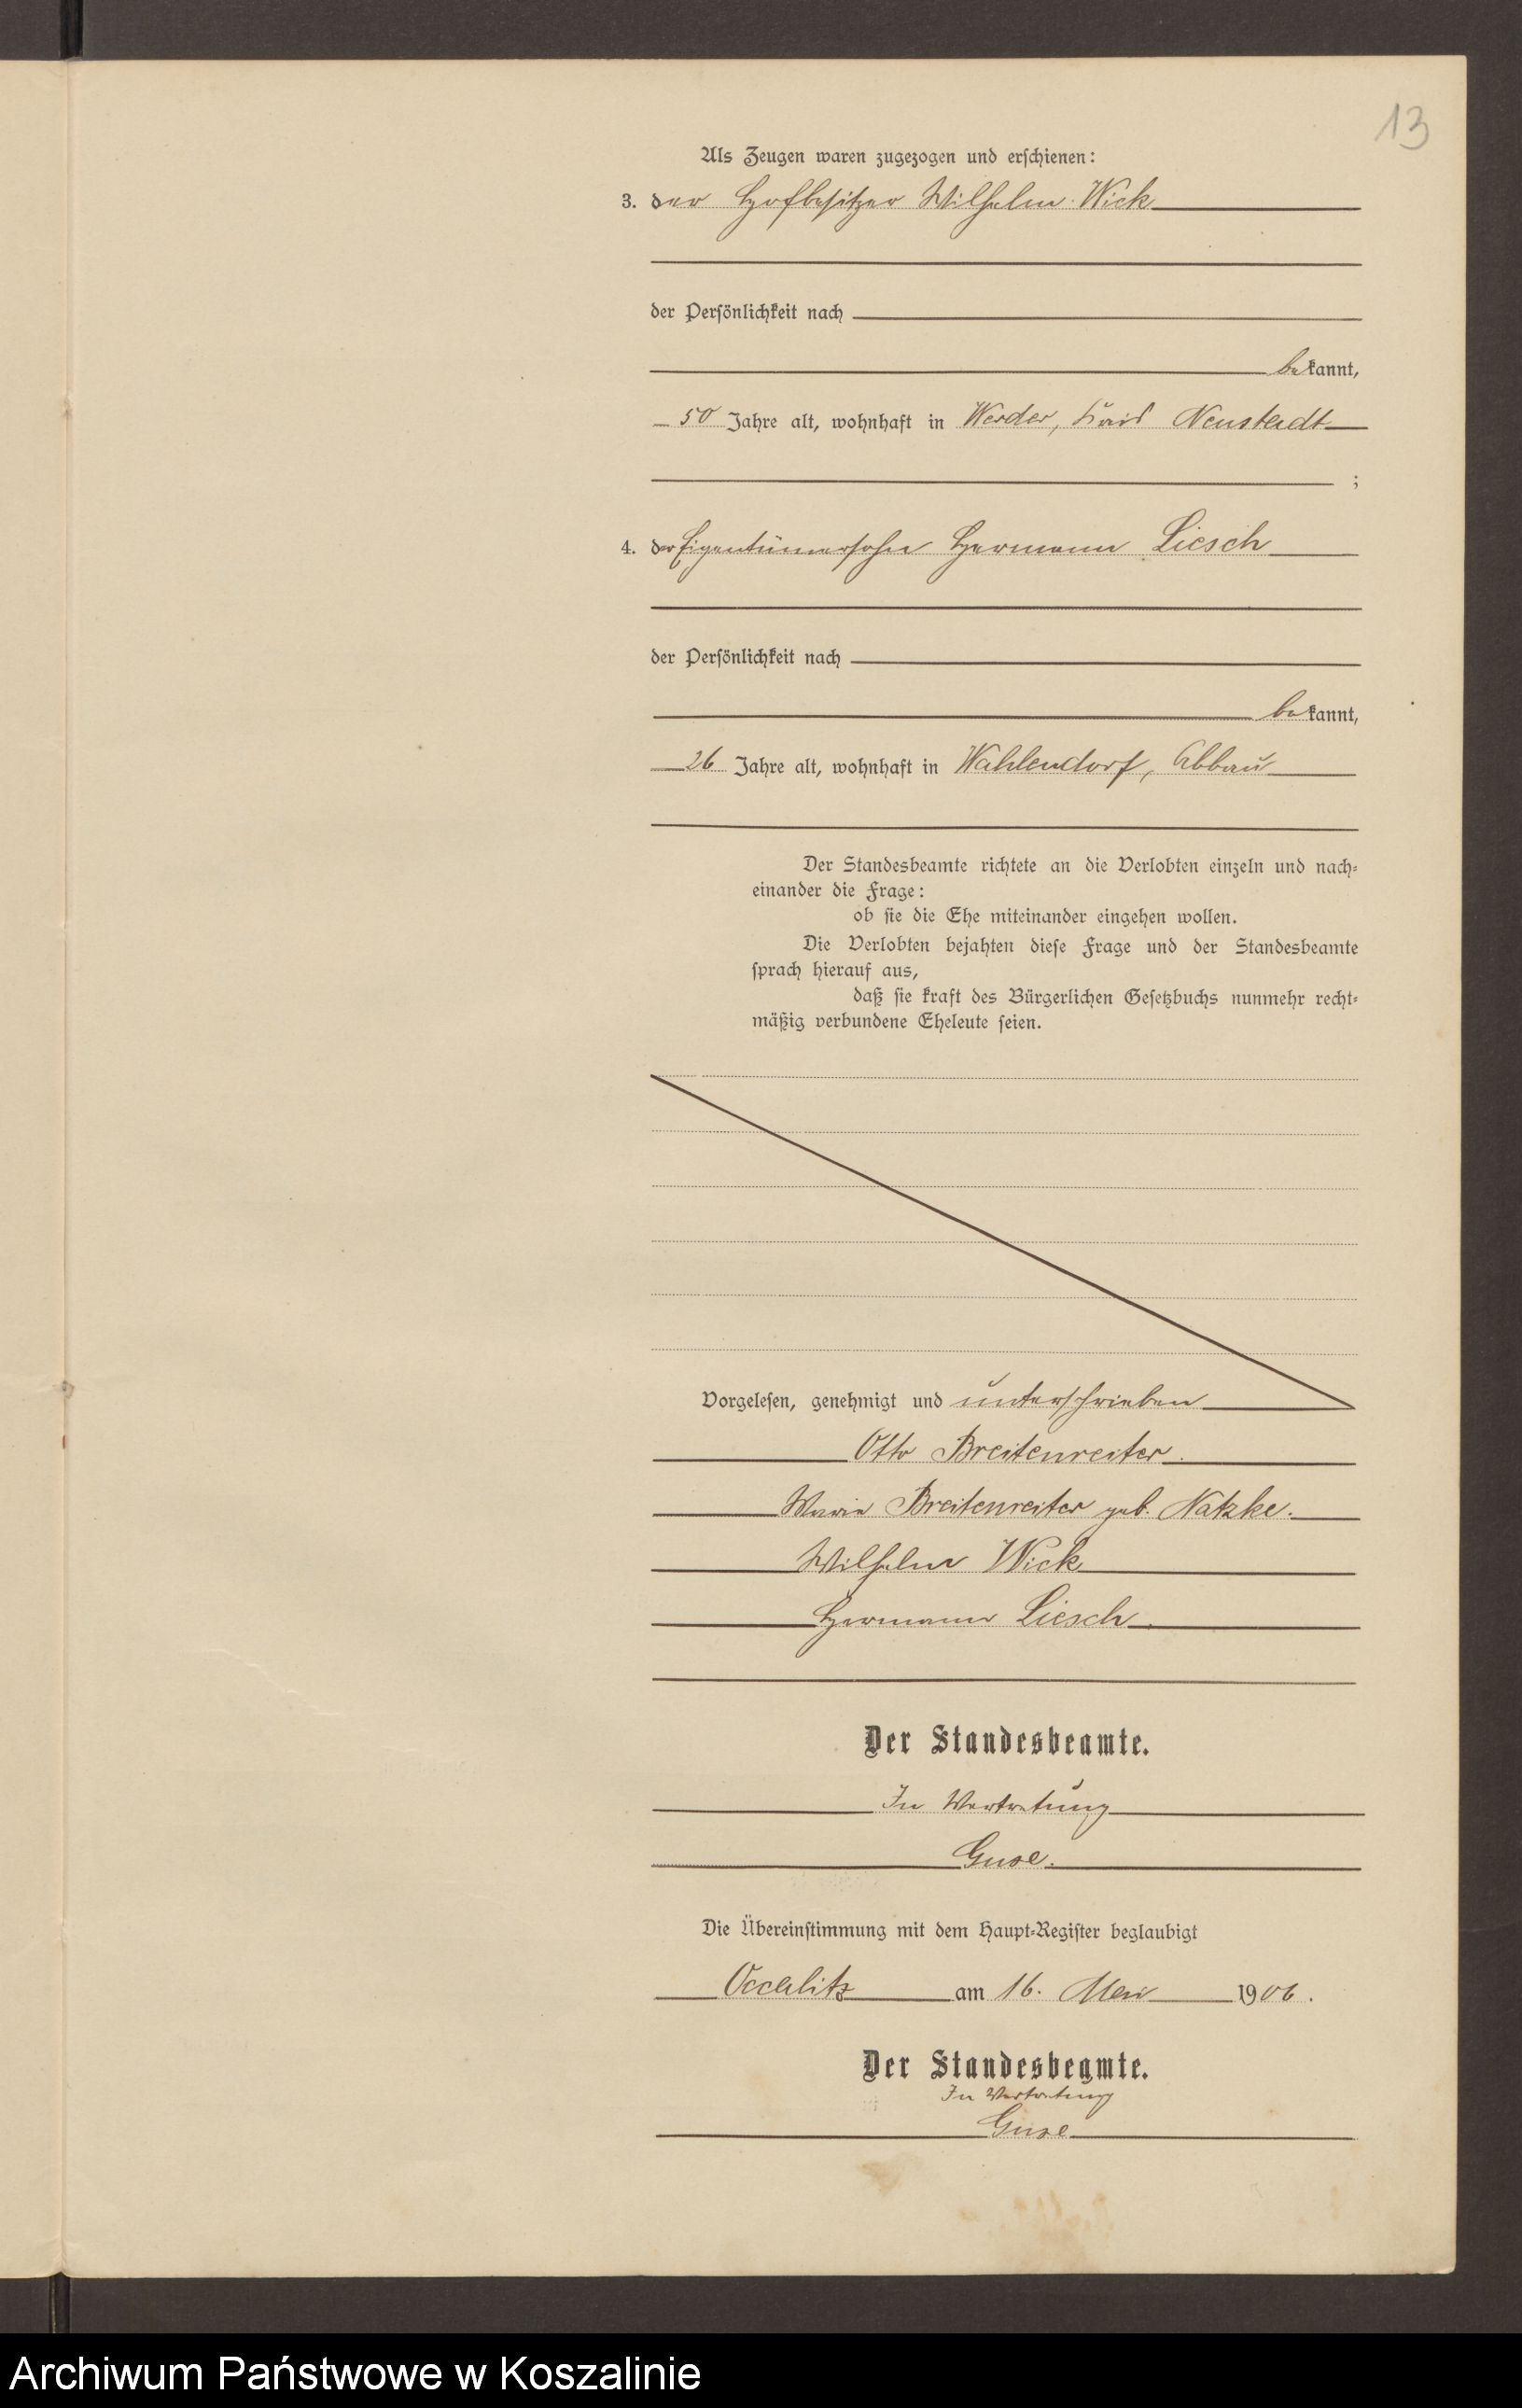 13
Als Zeugen waren zugezogen und erschienen:
3. der Hofbesitzer Wilhelm Wick
der Persönlichkeit nach
bekannt,
50 Jahre alt, wohnhaft in Werder, Kreis Neustadt
;
4. der Eigentümersohn Hermann Liesch
der Persönlichkeit nach
bekannt,
26 Jahre alt, wohnhaft in Wahlendorf, Abbau
Der Standesbeamte richtete an die Verlobten einzeln und nach-
einander die Frage:
ob sie die Ehe miteinander eingehen wollen.
Die Verlobten bejahten diese Frage und der Standesbeamte
sprach hierauf aus,
daß sie kraft des Bürgerlichen Gesetzbuchs nunmehr recht-
mäßig verbundene Eheleute seien.
Vorgelesen, genehmigt und unterschrieben
Otto Breitenreiter.
Marie Breitenreiter geb. Natzke.
Wilhelm Wick
Hermann Liesch.
Der Standesbeamte.
In Vertretung
Guse.
Die Übereinstimmung mit dem Haupt-Register beglaubigt
Occalitz am 16. Mai 1906.
Der Standesbeamte.
In Vertretung
Guse
Archiwum Państwowe w Koszalinie